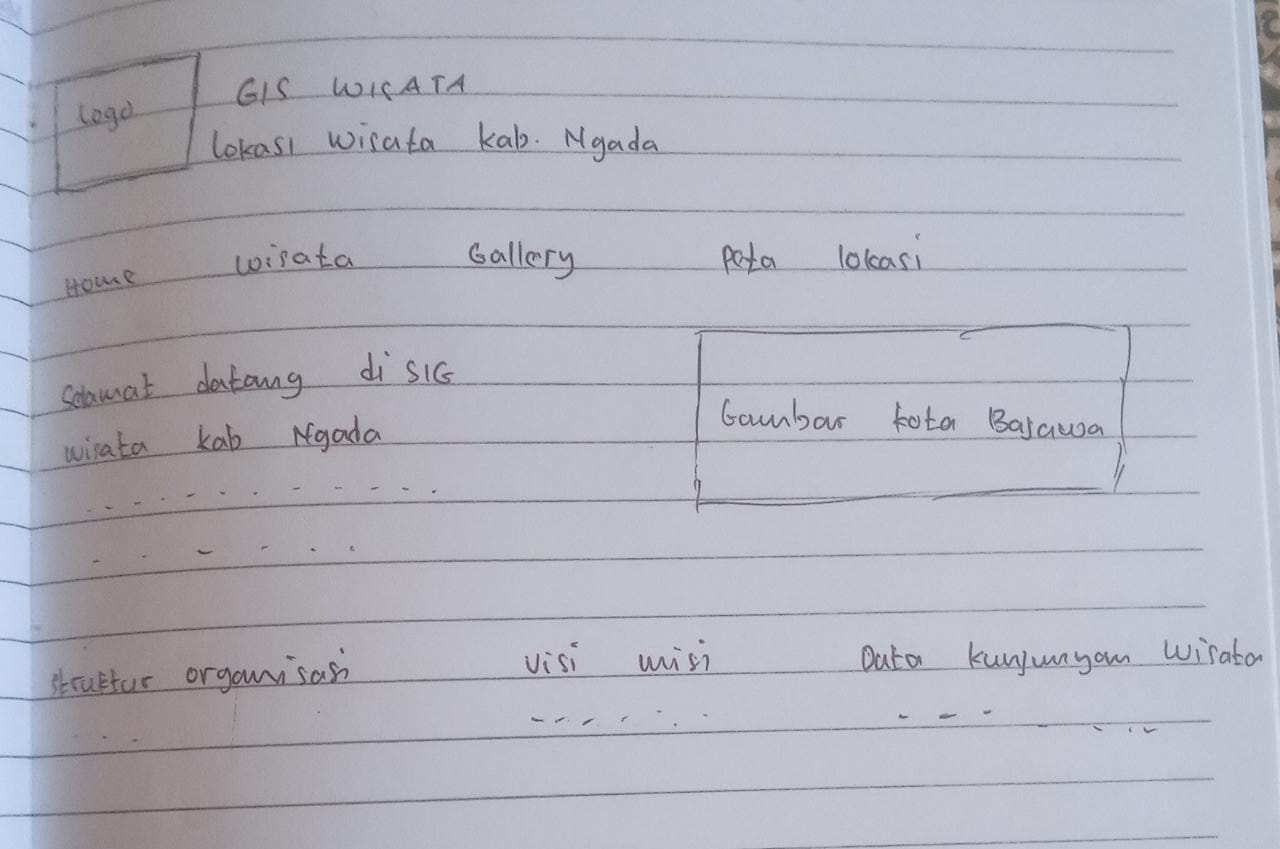 Logo
GIS WISATA
lokasi wisata kab. Ngada
Home wisata Gallery peta lokasi
Selamat datang di SIG
wisata kab Ngada
Gambar kota Bajawa
struktur organisasi visi misi Data kunjungan wisata